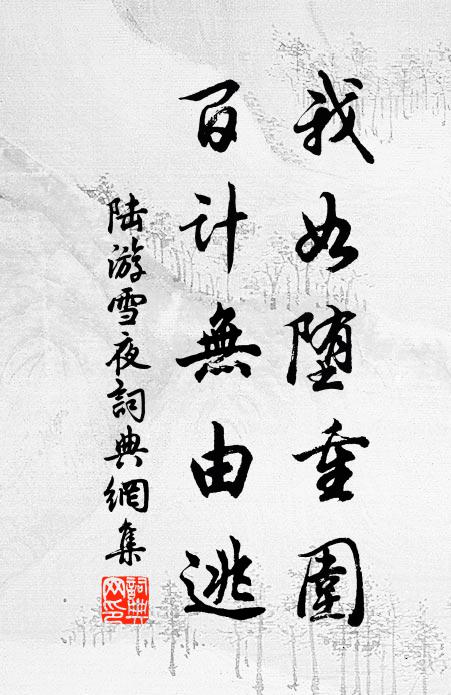 我如堕重圍
百计無由逃
陆游雪夜詞典網集
詞典